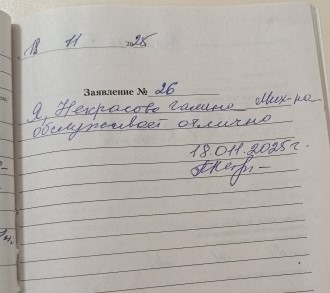 18 11 2025
Заявление № 26
Я, Некрасова Галина Мих-на
обслуживает отлично
18.011.2025 г.